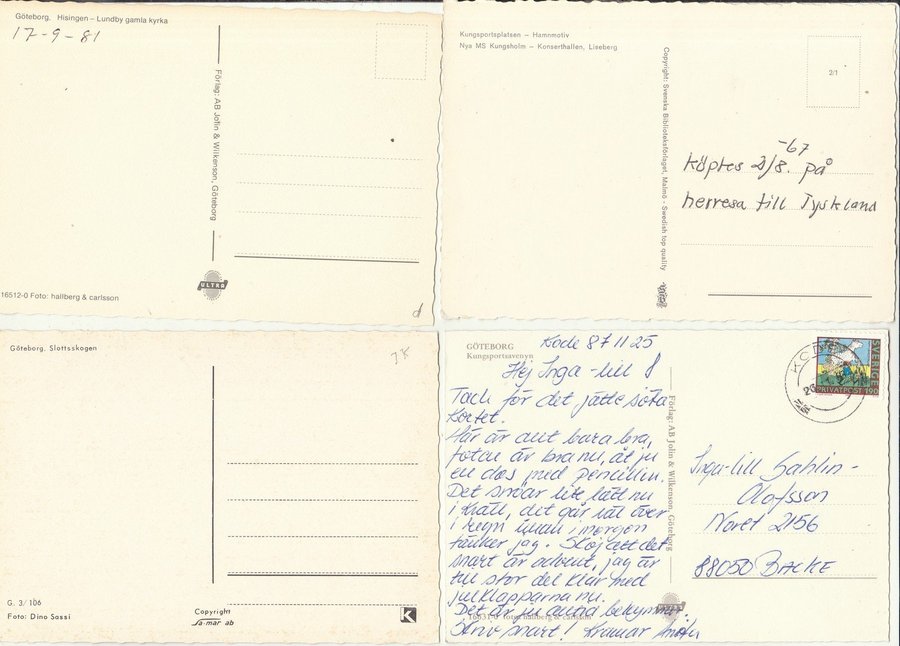 Göteborg. Hisingen – Lundby gamla kyrka
17-9-81
Förlag: AB Jolin & Wilkenson, Göteborg
ULTRA
16512-0 Foto: hallberg & carlsson
d
Kungsportsplatsen – Hamnmotiv
Nya MS Kungsholm – Konserthallen, Liseberg
Copyright: Svenska Biblioteksförlaget, Malmö · Swedish top quality
2/1
-67
köptes 2/8. på
herresa till Tyskland
Göteborg. Slottsskogen
7K
G. 3/106
Foto: Dino Sassi
Copyright
sa-mar ab
K
GÖTEBORG
Kungsportsavenyn
Kode 87 11 25
Hej Inga-lill!
Tack för det jätte söta
kortet.
Här är det bara bra,
foten är bra nu, åt ju
en dos med penicillin.
Det snöar lite lätt nu
i kväll, det går väl över
i regn innan i morgon
tänker jag. Skoj att det
snart är advent, jag är
till stor del klar med
julklapparna nu.
Det är ju alltid bekymmer.
Skriv snart! Kramar
Förlag: AB Jolin & Wilkenson, Göteborg
ULTRA
16631-0 foto: hallberg & carlsson
KODE
SVERIGE
PRIVATPOST 190
Inga-lill Sahlin-
Olofsson
Noret 2156
88050 BACKE